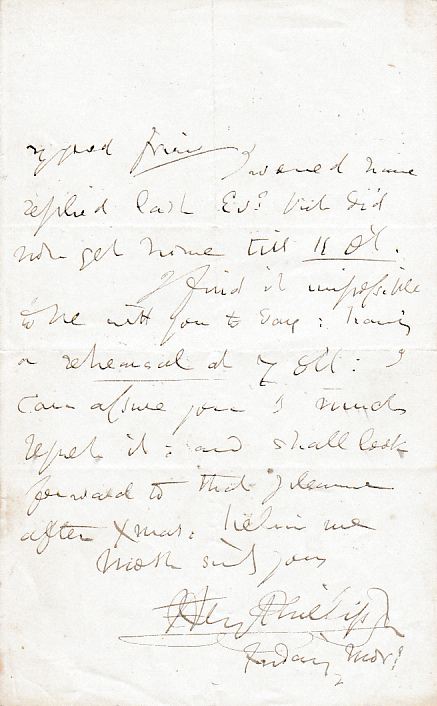 My good friend I would have
replied last Evg. but did
not get home till 11 Ock.
I find it impossible
to be with you to day: having
a rehearsal at 7 Ock: I
can assure you I much
regret it: and shall look
forward to that pleasure
after Xmas. believe me
Most sincly yours
Heny Phillips
Friday Morg